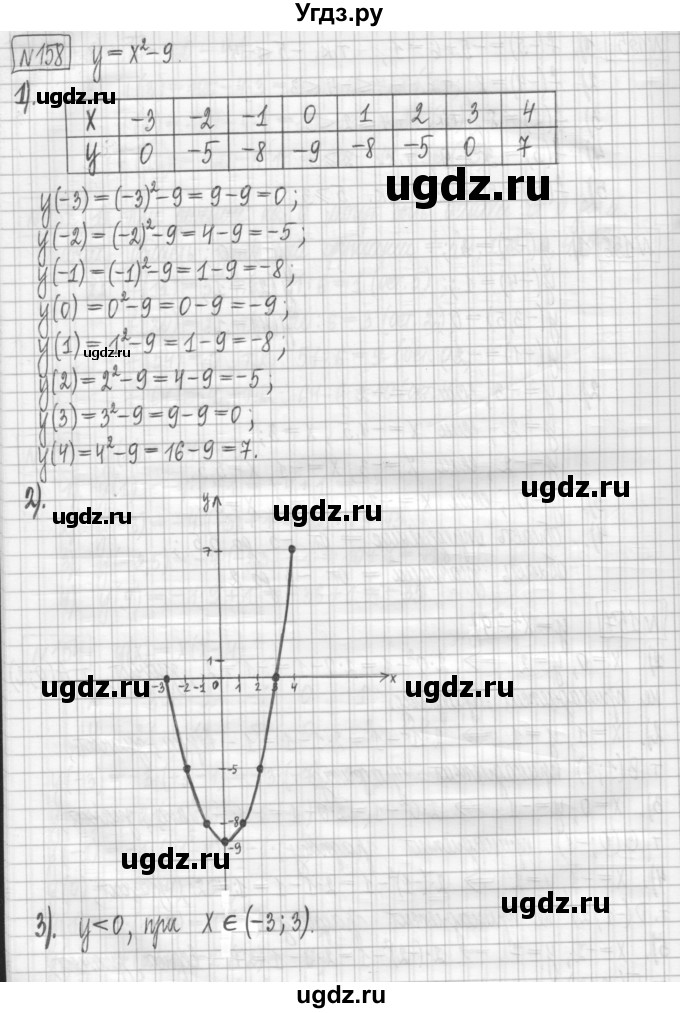 Угдз.ру
№158 y = x² - 9.
1).
x -3 -2 -1 0 1 2 3 4
y 0 -5 -8 -9 -8 -5 0 7
y(-3) = (-3)² - 9 = 9 - 9 = 0;
y(-2) = (-2)² - 9 = 4 - 9 = -5;
y(-1) = (-1)² - 9 = 1 - 9 = -8;
y(0) = 0² - 9 = 0 - 9 = -9;
y(1) = 1² - 9 = 1 - 9 = -8;
y(2) = 2² - 9 = 4 - 9 = -5;
y(3) = 3² - 9 = 9 - 9 = 0;
y(4) = 4² - 9 = 16 - 9 = 7.
2).
y
7
1
-3 -2 -1 0 1 2 3 4 x
-5
-8
-9
3). y < 0, при x ∈ (-3; 3).
ugdz.ru
ugdz.ru
ugdz.ru
ugdz.ru
ugdz.ru
ugdz.ru
ugdz.ru
ugdz.ru
ugdz.ru
ugdz.ru
ugdz.ru